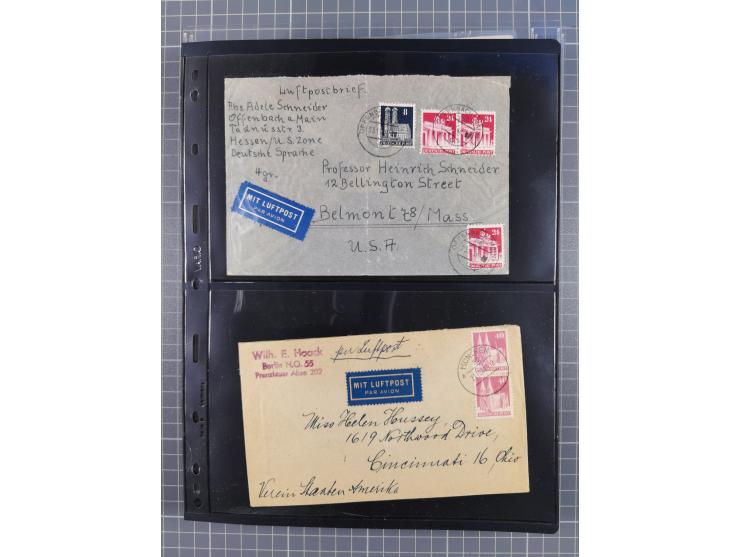 Luftpostbrief
Abs Adele Schneider
Offenbach a Main
Taunusstr 3.
Hessen/U.S. Zone
Deutsche Sprache
4gr.
8
24
24
Professor Heinrich Schneider
12 Bellington Street
Belmont 78/Mass
U.S.A
MIT LUFTPOST
PAR AVION
24
Wilh. E. Haack
Berlin N.O. 55
Prenzlauer Allee 202
per Luftpost
40
MIT LUFTPOST
PAR AVION
Miss Helen Hussey,
1619 Northwood Drive,
Cincinnati 16, Ohio
Verein Staaten Amerika